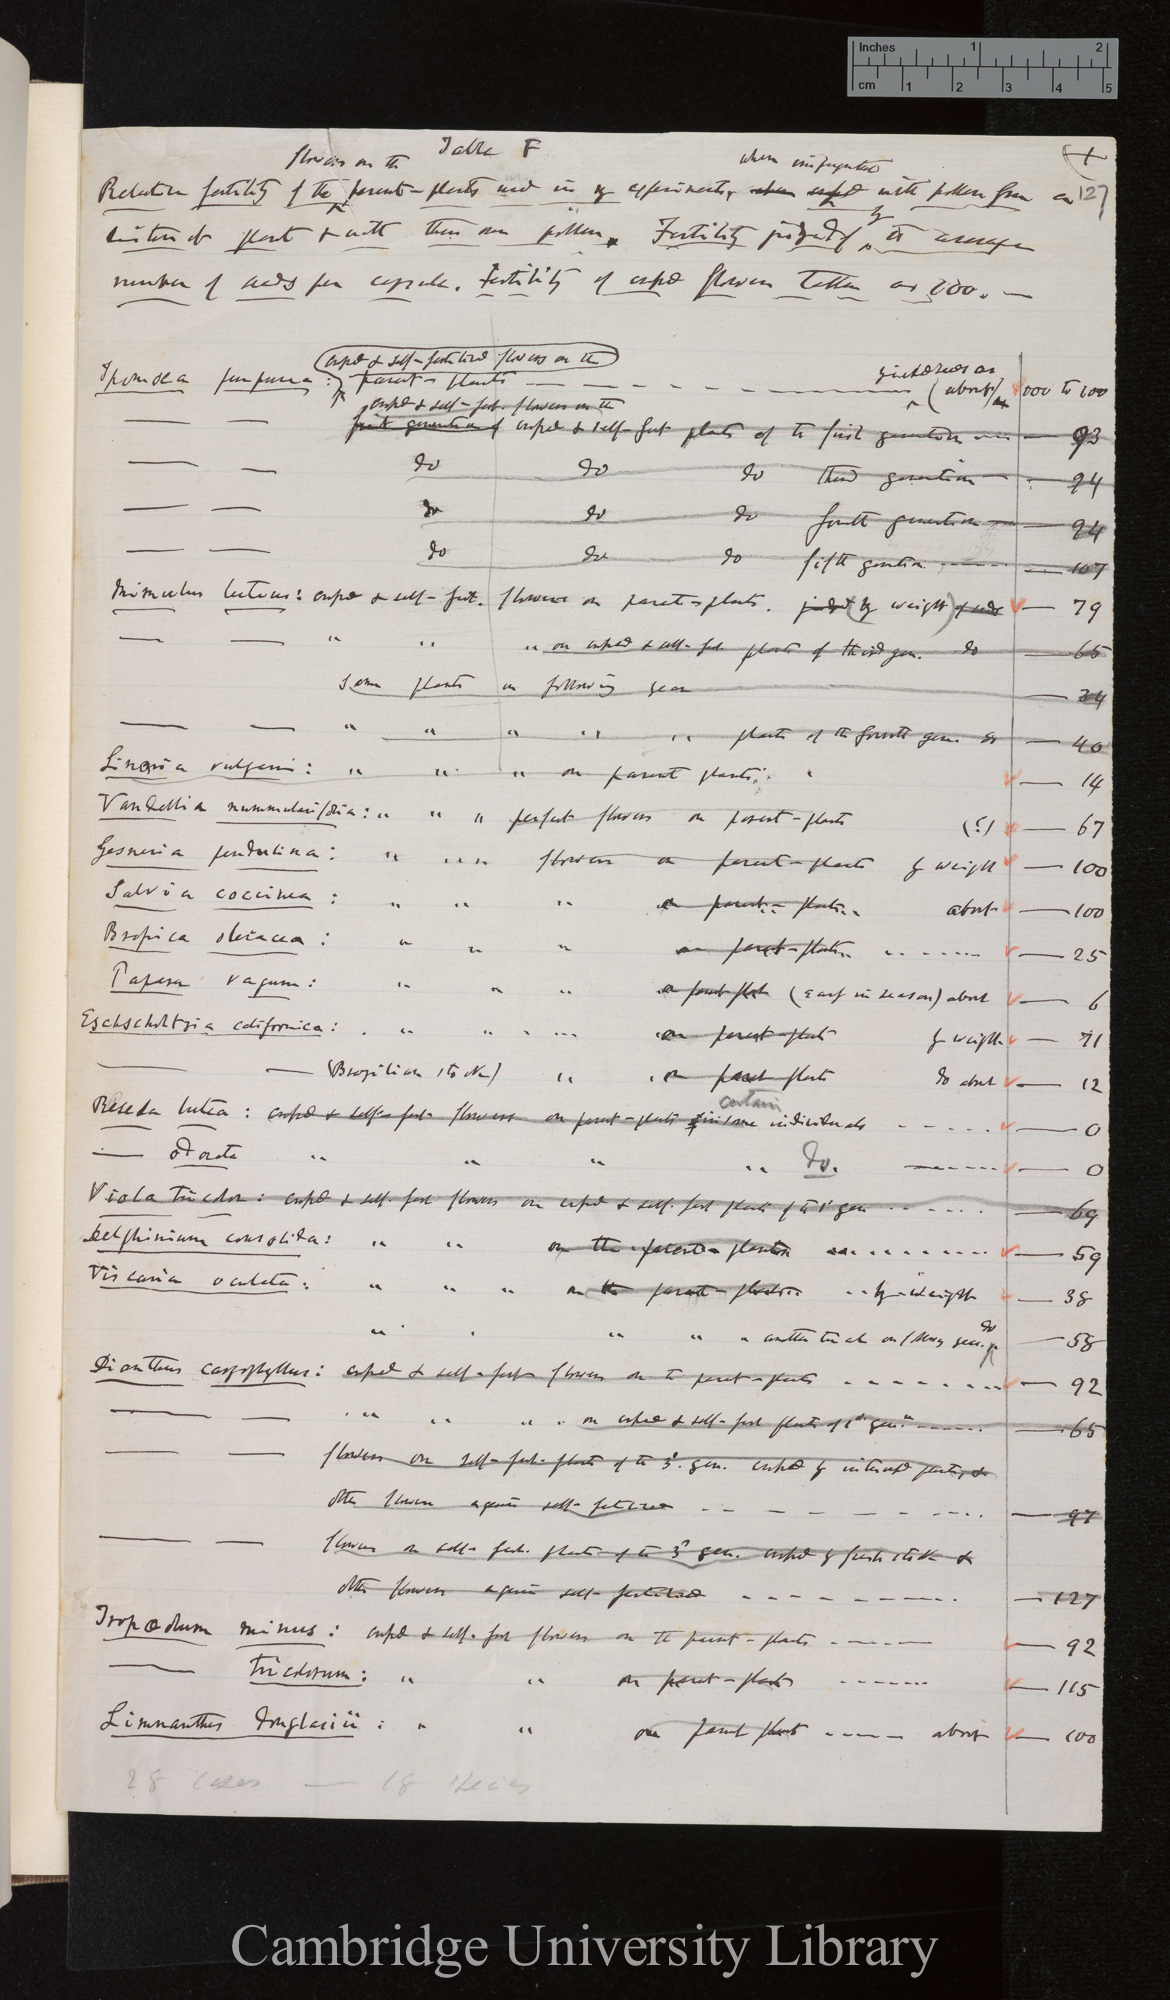 Inches 1 2
cm 1 2 3 4 5
Table F
127
flowers on the
when impregnated
Relative fertility of the parent-plants used in my experiments, when with pollen from a
distinct plant & with their own pollen. Fertility judged of by the average
number of seeds per capsule. Fertility of crossed flowers taken as 100. —
crossed & self-fertilised flowers on the
Ipomoea purpurea : parent-plants (about) 100 to 100
crossed & self-fert. flowers on the
first generation of crossed & self-fert plants of the first generation — 93
— — do do do third generation — 94
— — do do do fourth generation — 94
— — do do do fifth generation — 107
Mimulus luteus: & self-fert. flowers on parent-plants. judged (by weight) of seeds — 79
— — " " " on crossed & self-fer plants of third gen. do — 65
Same plants in following year — 34
— — " " " " " plants of the fourth gen. do — 40
Linaria vulgaris: " " " on parent plants — 14
Vandellia nummularifolia: " " " perfect flowers on parent-plants (?) — 67
Gesneria pendulina: " " " flowers on parent-plants by weight — 100
Salvia coccinea: " " " on parent-plants. about — 100
Brassica oleracea: " " " on parent-plants. — 25
Papaver vagum: " " " on parent plant (early in season) about — 6
Eschscholtzia californica: " " " on parent-plants by weight — 71
— — (Brazilian stock) " " on parent plants do about — 12
certain
Reseda lutea: & self-fert flowers on parent-plants some individuals — 0
— odorata " " " " Do. — 0
Viola tricolor: & self-fert flowers on crossed & self-fert plants of the 1st gen — 69
Delphinium consolida: " " on the parent-plants — 59
Viscaria oculata: " " " on the parent-plants by weight — 38
" " " " another trial on following year. do — 58
Dianthus caryophyllus: crossed & self-fert flowers on the parent-plants — 92
— — " " " on crossed & self-fert plants of 1st gen. — 65
— — flowers on self-fert. plants of the 3d. gen. crossed by intercrossed plants, &
other flowers again self-fertilised — 97
— — flowers on self-fert. plants of the 3d gen. crossed by fresh stock &
other flowers again self-fertilised — 127
Tropæolum minus: crossed & self-fert flowers on the parent-plants — 92
— tricolorum: " " on parent-plants — 115
Limnanthes douglasii: " " on parent plants about — 100
28 cases — 18 species
Cambridge University Library